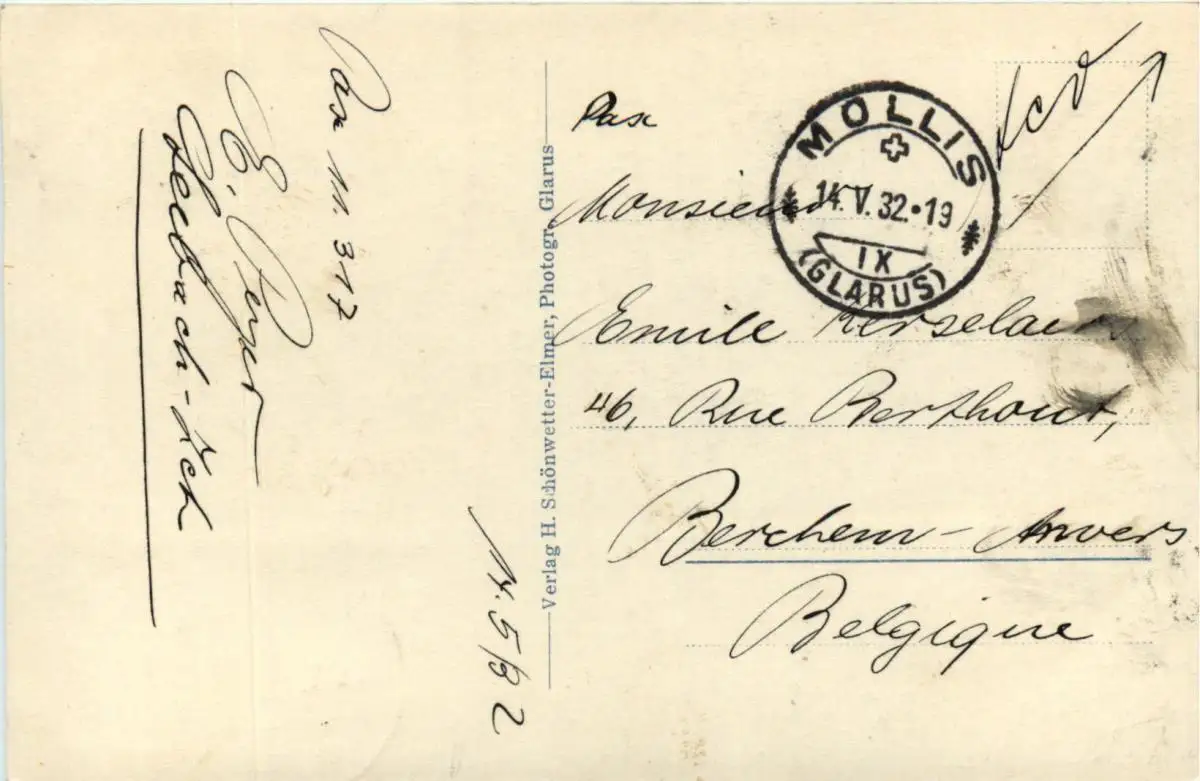 Pax 11. 317
E.
Seebach-Zch
14.5/32
Verlag H. Schönwetter-Elmer, Photogr., Glarus
Pax
MOLLIS
14.V.32·19
IX
(GLARUS)
TCV
Monsieur
Emile Kerselaers
46, Rue Berthout,
Berchem-Anvers
Belgique